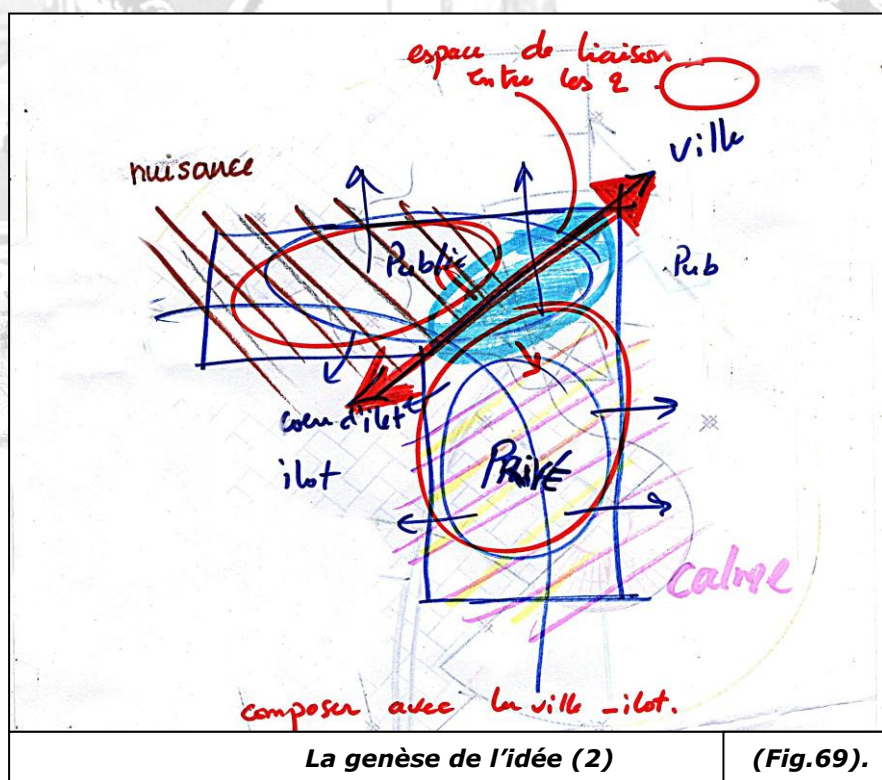 espace de liaison
entre les 2
ville
nuisance
Public
Pub
coeur d'ilot
ilot
PRIVE
calme
composer avec la ville - ilot.
La genèse de l'idée (2)
(Fig.69).